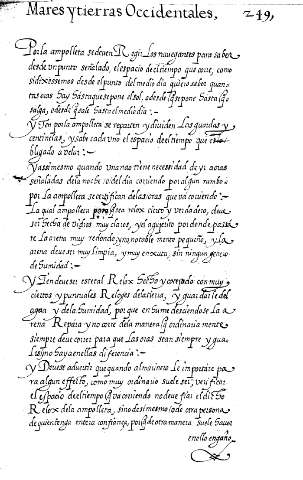 Mares y tierras Occidentales, 249,
Por la ampolleta se deven Regir los navegantes para saber
desde un punto señalado, el espacio del tiempo que corre, como
si dixessemos desde el punto del medio dia quiero saber quan
tas oras hay hasta que se pone el sol, o desde que se pone hasta que
salga, o desde que sale hasta el mediodia
y Ten por la ampolleta se reparten y dividen Las guardas y
centinelas, y sabe cada uno el espacio del tiempo que es
bligado a velar
y assimesmo quando una nao tiene necessidad de yr a oras
señaladas de la noche o del dia corriendo por algun rumbo
por La ampolleta se certifican de las oras que va corriendo
La qual ampolleta para sea relox cierto y verdadero, deve
ser hecha de vidrios muy claros, y el agujerito por donde passa
la arena muy redondo y no noble mente pequeño, y la
arena deve ser muy limpia, y muy enxuta, sin ningun
de humidad
y Ten deve ser este tal Relox hecho y cotejado con muy
ciertos y puntuales Relojes de la tierra, y guardarle del
agua y de la humidad, porque en humedeciendose La a
rena Repara y no corre de la manera que ordinaria mente
siempre deve correr para que Las oras sean siempre y gua
Les y no haya en ellas diferencia
y Devese advertir que quando al navio le importare pa
ra algun effetto, como muy ordinario suele ser, verificar
el espacio del tiempo que va corriendo no deve fiar el dicho
Relox de la ampolleta, sino de si mesmo o de otra persona
de quien tenga entera confiança, porque de otra manera suele haver
en ello engaño